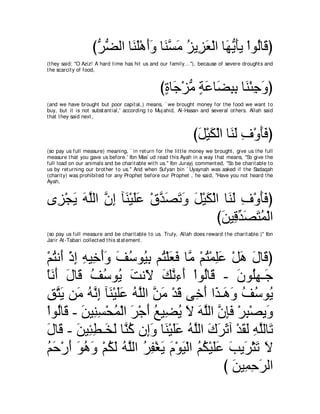 (قَالُواْ يأَيُّهَا الْعَزِيزُ مَسَّنَا وَأَهْلَنَا الضُّرُّ)
(they said: "O Aziz! A hard time has hit us and our family...''), because of severe droughts and the scarcity of food,
(وَجِئْنَا بِبِضَاعَةٍ مُّزْجَاةٍ)
(and we have brought but poor capital,) means, `we brought money for the food we want to buy, but it is not substantial,' according to Mujahid, Al-Hasan and several others. Allah said that they said next,
(فَأَوْفِ لَنَا الْكَيْلَ)
(so pay us full measure) meaning, `in return for the little money we brought, give us the full measure that you gave us before.' Ibn Mas`ud read this Ayah in a way that means, "So give the full load on our animals and be charitable with us.'' Ibn Jurayj commented, "So be charitable to us by returning our brother to us.'' And when Sufyan bin `Uyaynah was asked if the Sadaqah (charity) was prohibited for any Prophet before our Prophet , he said, "Have you not heard the Ayah,
(فَأَوْفِ لَنَا الْكَيْلَ وَتَصَدَّقْ عَلَيْنَآ إِنَّ اللَّهَ يَجْزِى
الْمُتَصَدِّقِينَ)
(so pay us full measure and be charitable to us. Truly, Allah does reward the charitable.)'' Ibn Jarir At-Tabari collected this statement.
(قَالَ هَلْ عَلِمْتُمْ مَّا فَعَلْتُم بِيُوسُفَ وَأَخِيهِ إِذْ أَنتُمْ
جَـهِلُونَ - قَالُواْ أَءِنَّكَ لاّنتَ يُوسُفُ قَالَ أَنَاْ
يُوسُفُ وَهَـذَا أَخِى قَدْ مَنَّ اللَّهُ عَلَيْنَآ إِنَّهُ مَن يَتَّقِ
وَيَصْبِرْ فَإِنَّ اللَّهَ لاَ يُضِيعُ أَجْرَ الْمُحْسِنِينَ - قَالُواْ
تَاللَّهِ لَقَدْ آثَرَكَ اللَّهُ عَلَيْنَا وَإِن كُنَّا لَخَـطِئِينَ - قَالَ
لاَ تَثْرِيبَ عَلَيْكُمُ الْيَوْمَ يَغْفِرُ اللَّهُ لَكُمْ وَهُوَ أَرْحَمُ
الرَحِمِينَ )